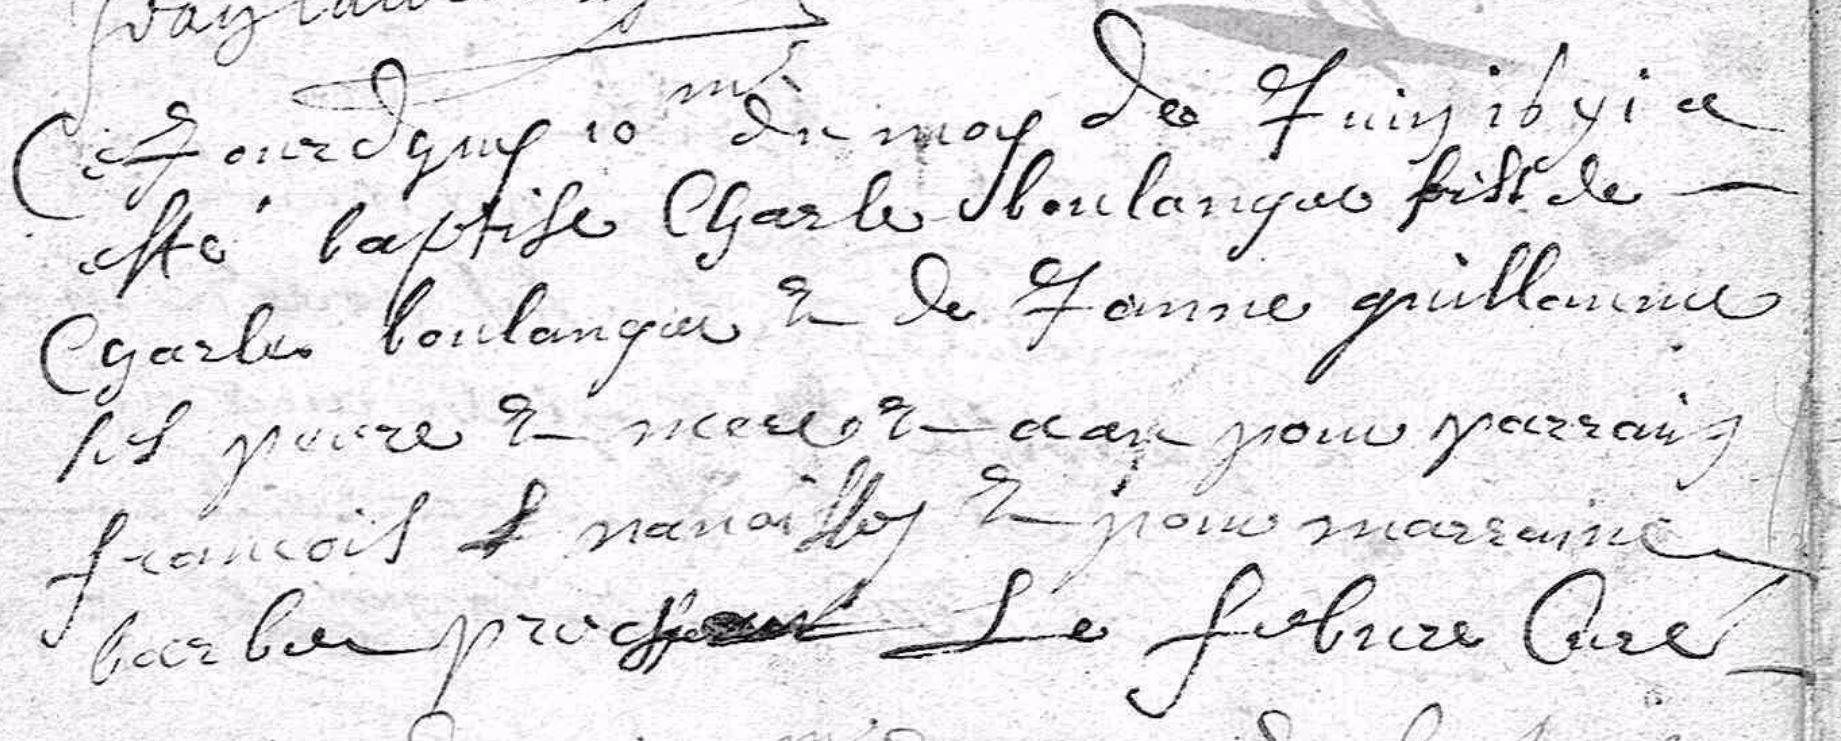 Ce Jourdhuy 10me du moys de Juin 1691 a
esté baptise Charle boulangee fils de
Charles boulangee & de Janne guillaume
ses peere & mere & a eu pour parrain
francois & pour marraine
barbe Le febure Curé